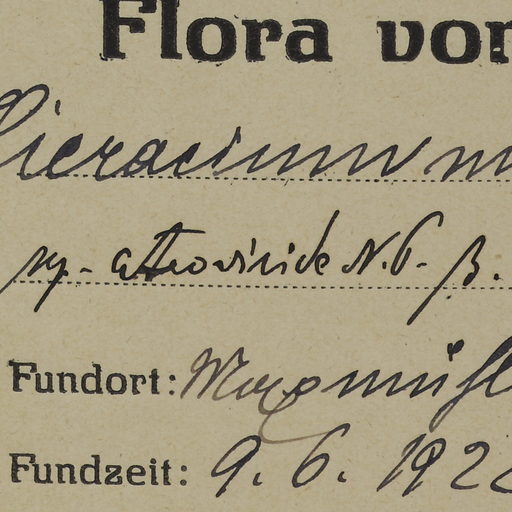 Flora von
Hieracium
sp. atroviride N. P. β.
Fundort: Maxmühl
Fundzeit: 9. 6. 192